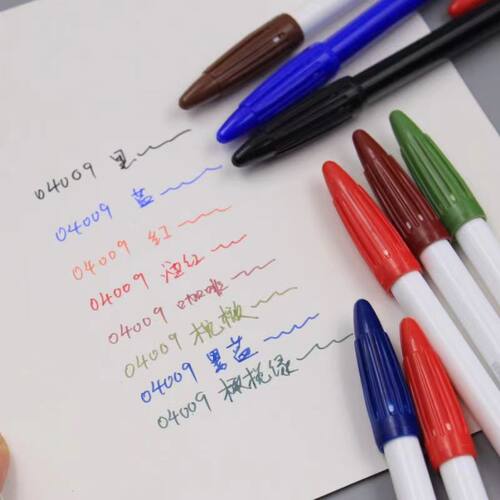 04009 黑
04009 蓝
04009 红
04009 酒红
04009 咖啡
04009 橄榄
04009 黑蓝
04009 橄榄绿